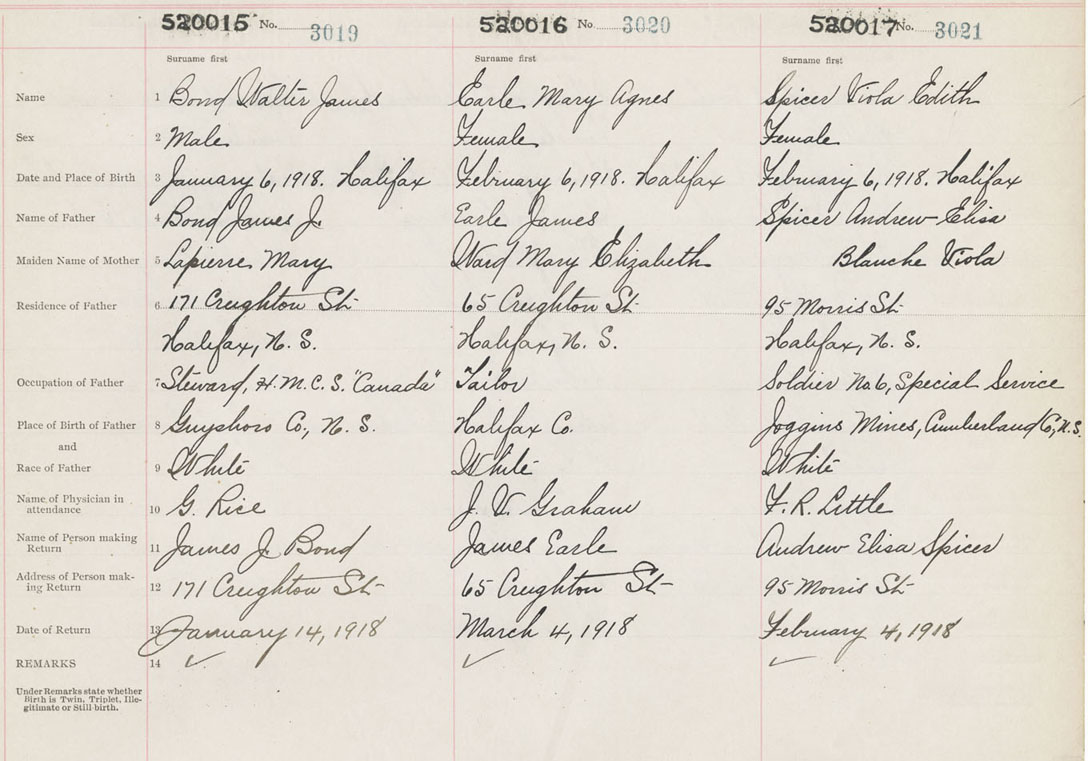 520015 No. 3019 520016 No. 3020 520017 No. 3021
Surname first Surname first Surname first
Name 1 Bond Walter James Earle Mary Agnes Spicer Viola Edith
Sex 2 Male Female Female
Date and Place of Birth 3 January 6, 1918. Halifax February 6, 1918. Halifax February 6, 1918. Halifax
Name of Father 4 Bond James J. Earle James Spicer Andrew Elisa
Maiden Name of Mother 5 Lapierre Mary Ward Mary Elizabeth Blanche Viola
Residence of Father 6 171 Creighton St. 65 Creighton St. 95 Morris St.
Halifax, N. S. Halifax, N. S. Halifax, N. S.
Occupation of Father 7 Steward, H.M.C.S. "Canada" Tailor Soldier No. 6, Special Service
Place of Birth of Father 8 Guysboro Co., N. S. Halifax Co. Joggins Mines, Cumberland Co, N.S.
and
Race of Father 9 White White White
Name of Physician in
attendance 10 G. Rice J. V. Graham F. R. Little
Name of Person making
Return 11 James J. Bond James Earle Andrew Elisa Spicer
Address of Person mak-
ing Return 12 171 Creighton St. 65 Creighton St. 95 Morris St.
Date of Return 13 January 14, 1918 March 4, 1918 February 4, 1918
REMARKS 14 ✓ ✓ ✓
Under Remarks state whether
Birth is Twin, Triplet, Ille-
gitimate or Still-birth.